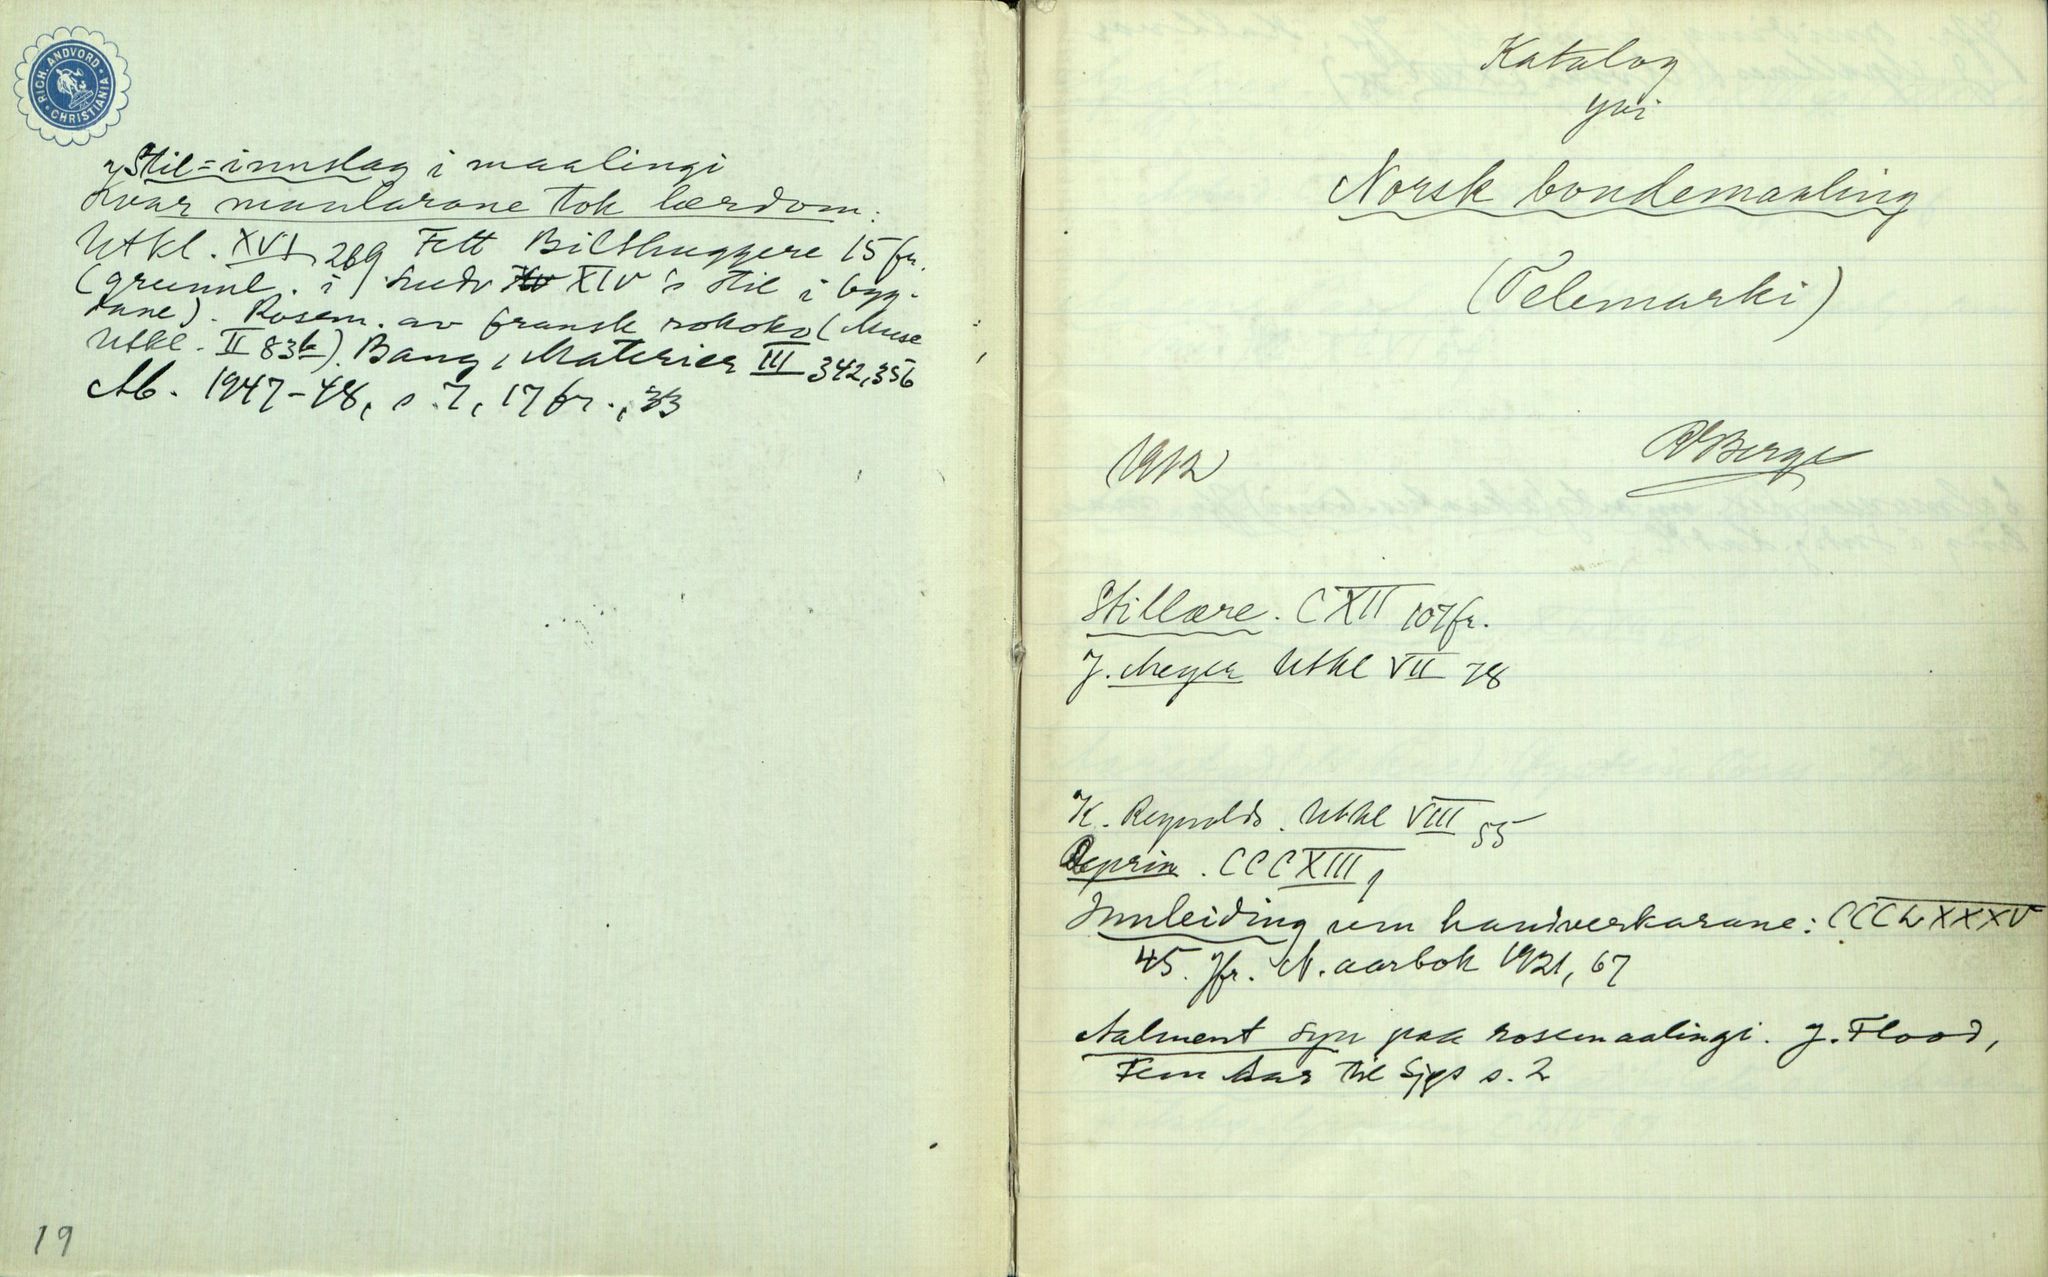 RICH. ANDVORD
CHRISTIANIA
Stil=innslag i maalingi
Kvar maalarane tok lærdom:
Utkl. XVI 269 Fett Bilthuggere 15 fr.
(grunnl. i Ludv XIV's stil i byg-
dane). Rosem. av fransk rokoko (Muse
Utkl. II 83b). Bang, Materier III 342, 356
Ab. 1947-48, s. 7, 17 fr., 33
19
Katalog
yvi
Norsk bondemaaling
(Telemarki)
1912
RBerge
Stillære. CXII 107 fr.
J. Meyer Utkl VII 78
K. Reynolds. Utkl VIII 55
CCCXIII 1
Innleiding um handverkarane: CCCLXXXV
45. Jfr. N. aarbok 1921, 67
Aalment syn paa rosemaalingi. J. Flood,
Fem Aar til Sjøs s. 2